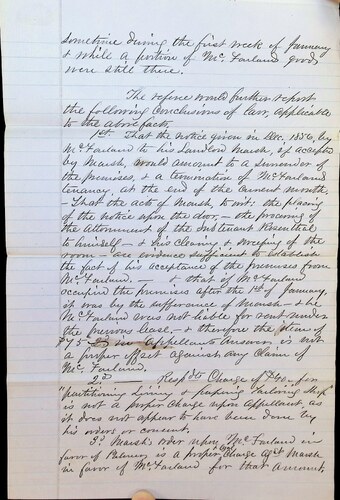 sometime during the first week of January,
& while a portion of McFarland goods
were still there.
The referee would further report
the following conclusions of law, applicable
to the above facts.
1st. That the notice given in Dec. 1856, by
McFarland to his Landlord Marsh, if accepted
by Marsh, would amount to a surrender of
the premises, & a termination of McFarlands
tenancy, at the end of the current month.
- That the acts of Marsh, to wit: the placing
of the notice upon the door, - the procuring of
the Attornment of the subtenant Rosenthal
to himself - & his cleaning & sweeping of the
room - are evidence sufficient to establish
the fact of his acceptance of the premises from
McFarland. - & that if McFarland
occupied the premises after the 1st of January,
it was by the sufferance of Marsh - & he
McFarland was not liable for rent under
the previous lease, - & therefore the claim of
$45 in Appellants Answer, is not
a proper offset against any claim of
McFarland.
2d Respdts Charge of $40 - for
"partitioning Living & preparing Tailoring Shop"
is not a proper charge upon Appellant, as
it does not appear to have been done by
his orders or consent.
3d Marsh's order upon McFarland in
favor of Palmer, is a proper charge agst Marsh
in favor of McFarland for that amount,